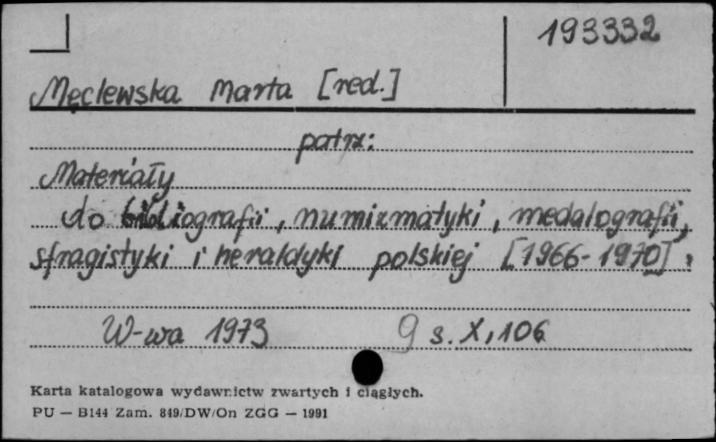 193332
Męclewska Marta [red.]
patrz:
Materiały
do bibliografii, numizmatyki, medalografii,
sfragistyki i heraldyki polskiej [1966-1970].
W-wa 1973 9 s. X, 106
Karta katalogowa wydawnictw zwartych i ciągłych.
PU — B144 Zam. 849/DW/On ZGG — 1991